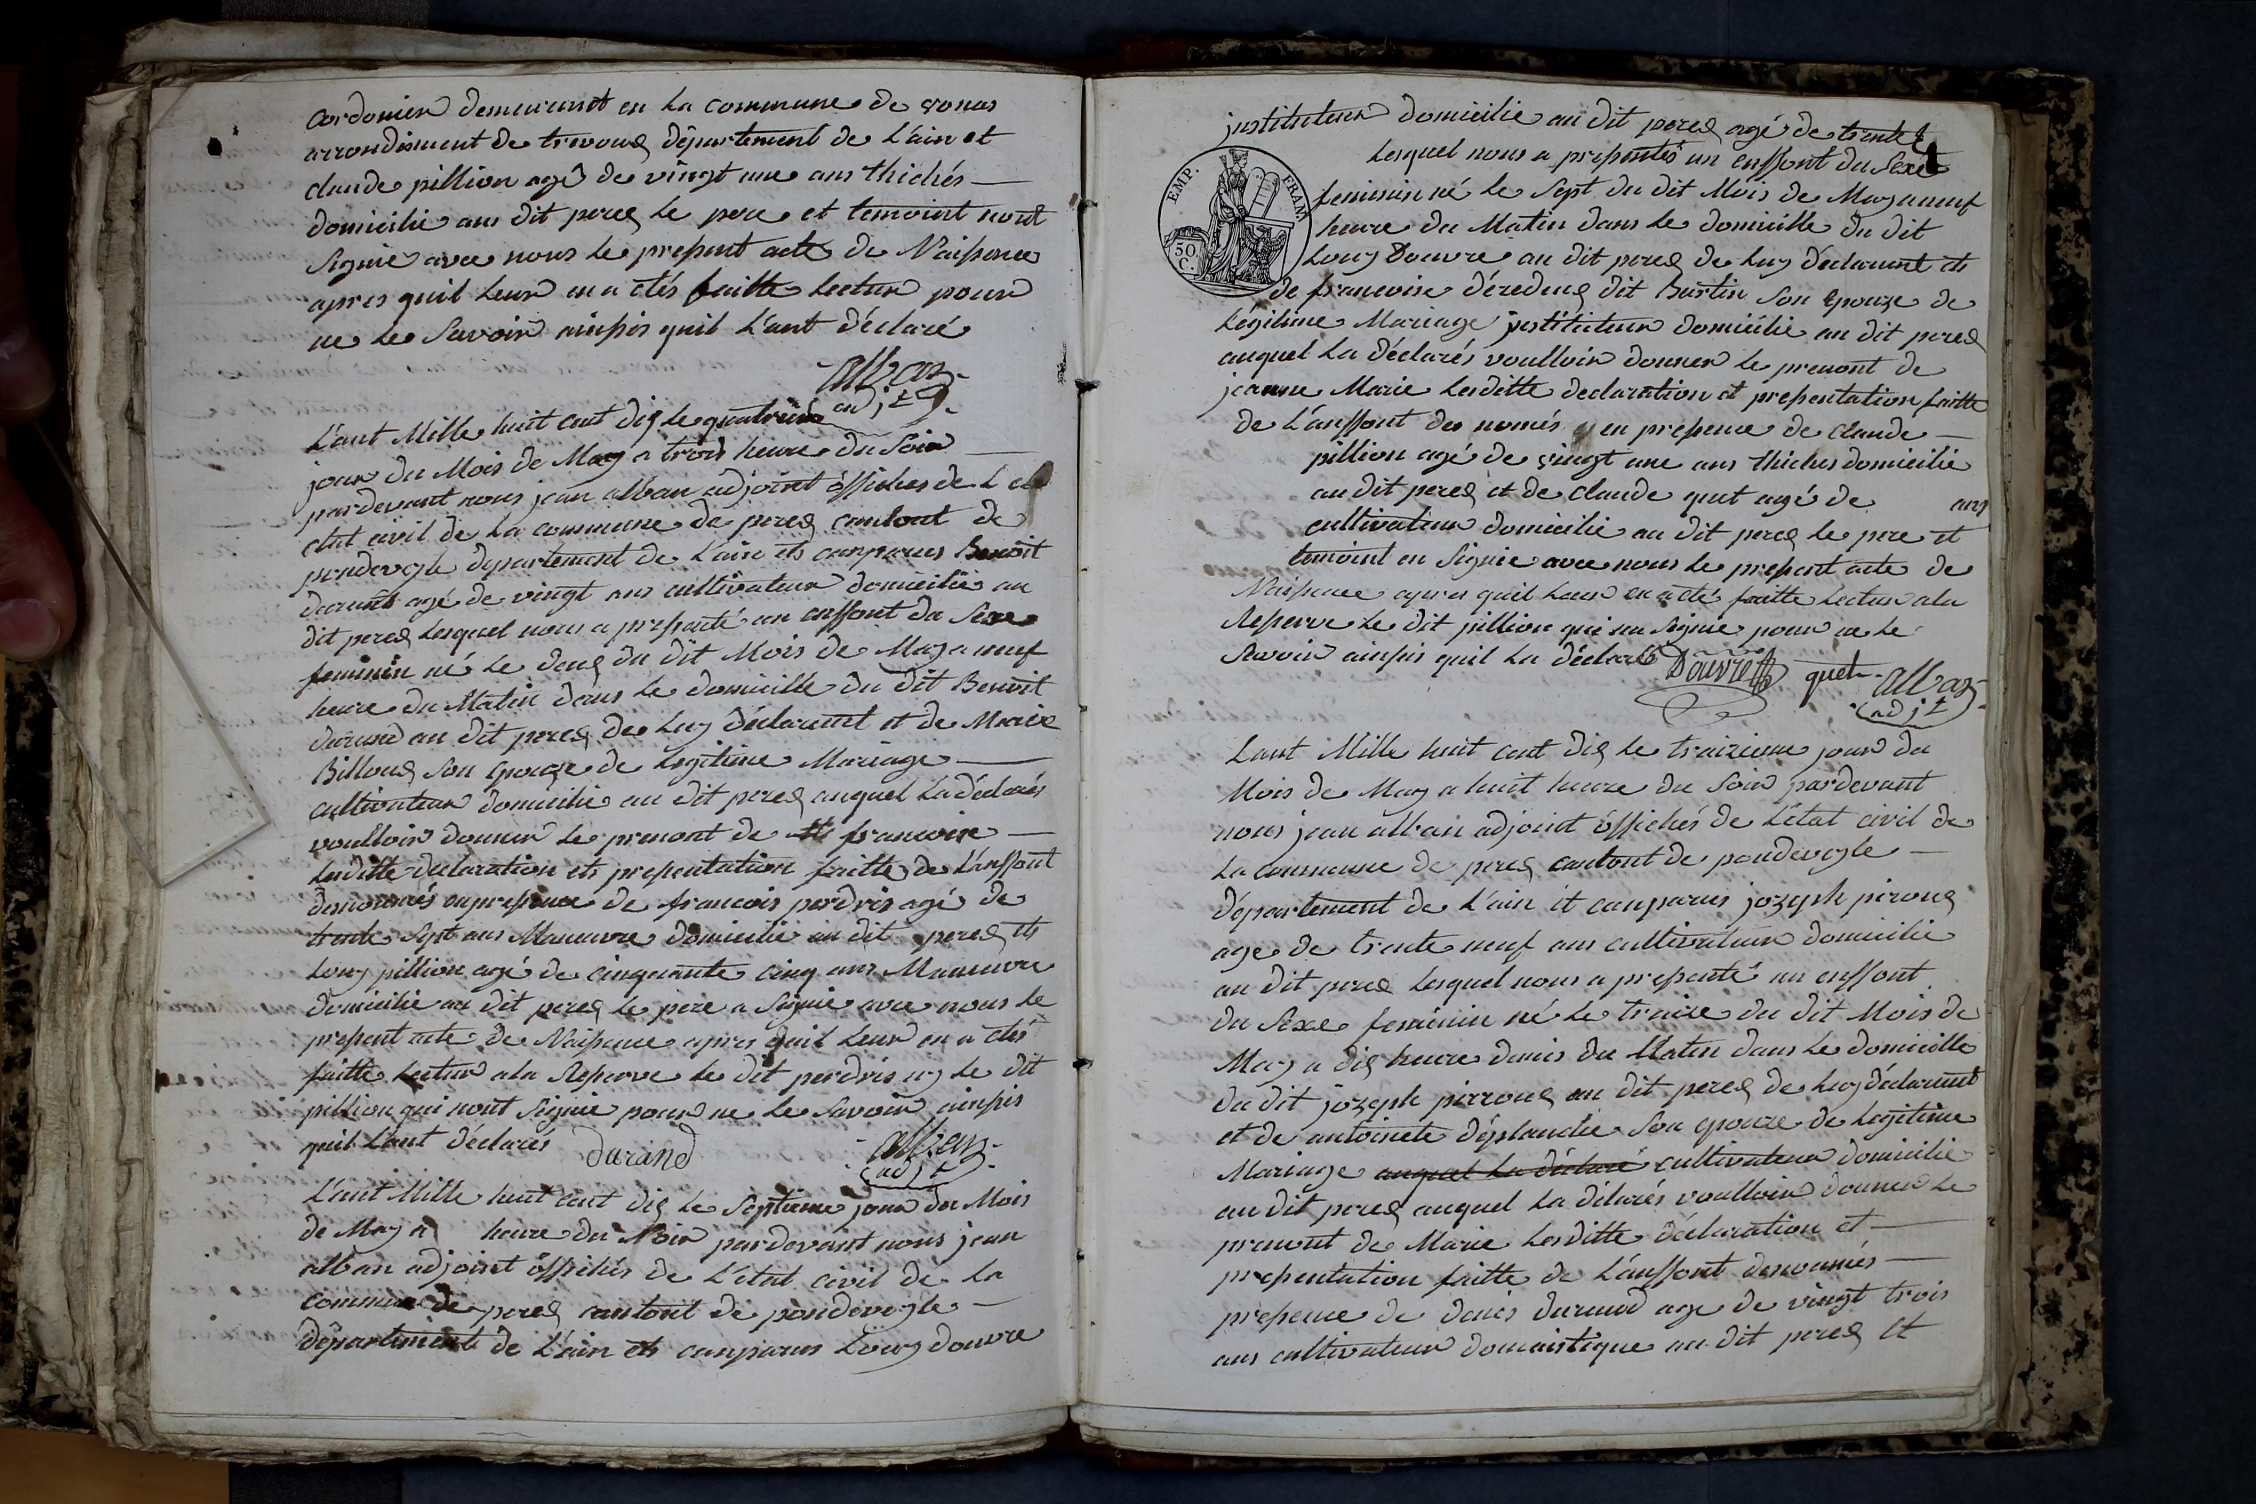 Cordonier demeurant en la commune de vonas
arrondisment de trevoux département de L'ain et
claude pillion agé de vingt une ans thichés
domicilie aus dit perex le pere et temoint nont
Signie avec nous le present acte de Naissence
apres quil Leur en a étés faitte lectur pour
ne le Savoir ainsis quil L'ant déclaré
alban
adjt
L'ant Mille huit cent dix le quatrieme
jour du Mois de May a trois heure du Soir
pardevant nous jean alban adjoint öffichés de L
état civil de La commune de perex cantont de
pondevegle département de L'ain ets canparus Benoit
durand agé de vingt ans cultivateur domicilie au
dit perex Lesquel nous a presanté un enffont du Sexe
feminin né le deux du dit Mois de May a neuf
heure du Matin dans le domicille du dit Benoit
durand au dit perex de Luy déclarent et de Marie
Billoux Son epouze de Legitime Mariage
cultivateur domicilie au dit perex auquel La déclarés
voulloir donner le prenont de francoise
Lesditte declaration ets presentation faitte de L'anffont
denommés en presence de francois perdrix agé de
trente Sept ans Maneuvre domicilie au dit perex ets
Louy pillion agé de cinquante cinq ans Maneuvre
domicilie au dit perex le pere a Signie avec nous le
present acte de Naissence apres quil Leur en a étés
faitte Lectur ala Reserve le dit perdrix ny le dit
pillion qui nont Signie pour ne le Savoir ainsis
quil L'ant déclarés durand alban
adjt
L'ant Mille huit cent dix le Septieme jour du Mois
de May a heure du Soir pardevant nous jean
alban adjoint öffichés de L'état civil de La
commune de perex cantont de pondevegle
département de L'ain ets canparus Louy douvre
justituteur domicilie au dit perex agé de trente
Lesquel nous a presentés un enffont du Sexe
feminin né le Sept du dit Mois de May a neuf
heure du Matin dans le domicille du dit
Louy Douvre au dit perex de Luy déclarent ets
de francoise déredeux dit Burtin Son Epouze de
Légitime Mariage justituteur domicilie au dit perex
auquel La déclarés voulloir donner le prenont de
jeanne Marie Lesditte declaration et presentation faitte
de L'anffont de només en presence de claude
pillion agé de vingt une ans thiches domicilie
au dit perex et de claude quet agé de ans
cultivateur domicilie au dit perex le pere et
temoint en Signie avec nous le present acte de
Naissence apres quil Leur en a été faitte Lectur ala
Reserve le dit pillion qui na Signie pour ne le
Savoir ainsis quil La déclaré Douvre quet alban
adjt
EMP. FRAN.
50 C.
Lant Mille huit cent dix le traizieme jour du
Mois de May a huit heure du Soir pardevant
nous jean alban adjoint öffichés de L'état civil de
La commune de perex cantont de pondevegle
département de L'ain et canparus jozeph piroux
age de trente neuf ans cultivateur domicilie
au dit perex Lesquel nous a presenté un enffont
du Sexe feminin né le traize du dit Mois de
May a dix heure demis du Matin dans le domicille
du dit jozeph pirroux au dit perex de Luy déclarent
et de antoinete déplandie Son epouze de Legitime
Mariage auquel La déclaré cultivateur domicilie
au dit perex auquel La délarés voulloir donner le
prenont de Marie Lesditte déclaration et
presentation faitte de L'anffont denomés
presence de denis durand age de vingt trois
ans cultivateur domaistique au dit perex et